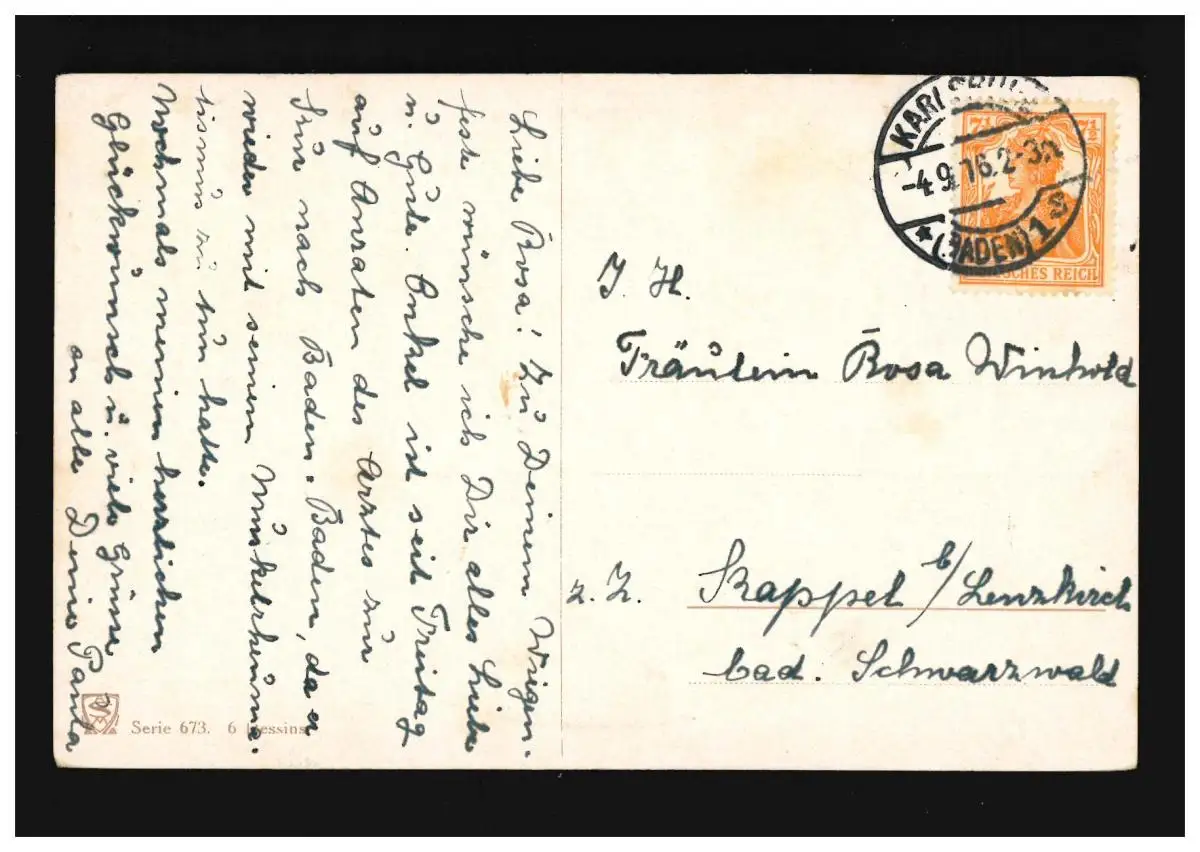 Liebe Rosa! Zu Deinem Wiegen-
feste wünsche ich Dir alles Liebe
u. Gute. Onkel ist seit Freitag
auf Anraten des Arztes zur
Kur nach Baden-Baden, da er
wieder mit seinem Muskelrheuma-
tismus zu tun hatte.
Nochmals meinen herzlichen
Glückwunsch u. viele Grüsse
an alle Deine Paula
Serie 673. 6 Dessins
KARLSRUHE
-4.9.16.2-3N
* (BADEN) 1 s
7½ 7½
REICH
I. H.
Fräulein Rosa Winhold
z. Z. Kappel b/ Lenzkirch
bad. Schwarzwald